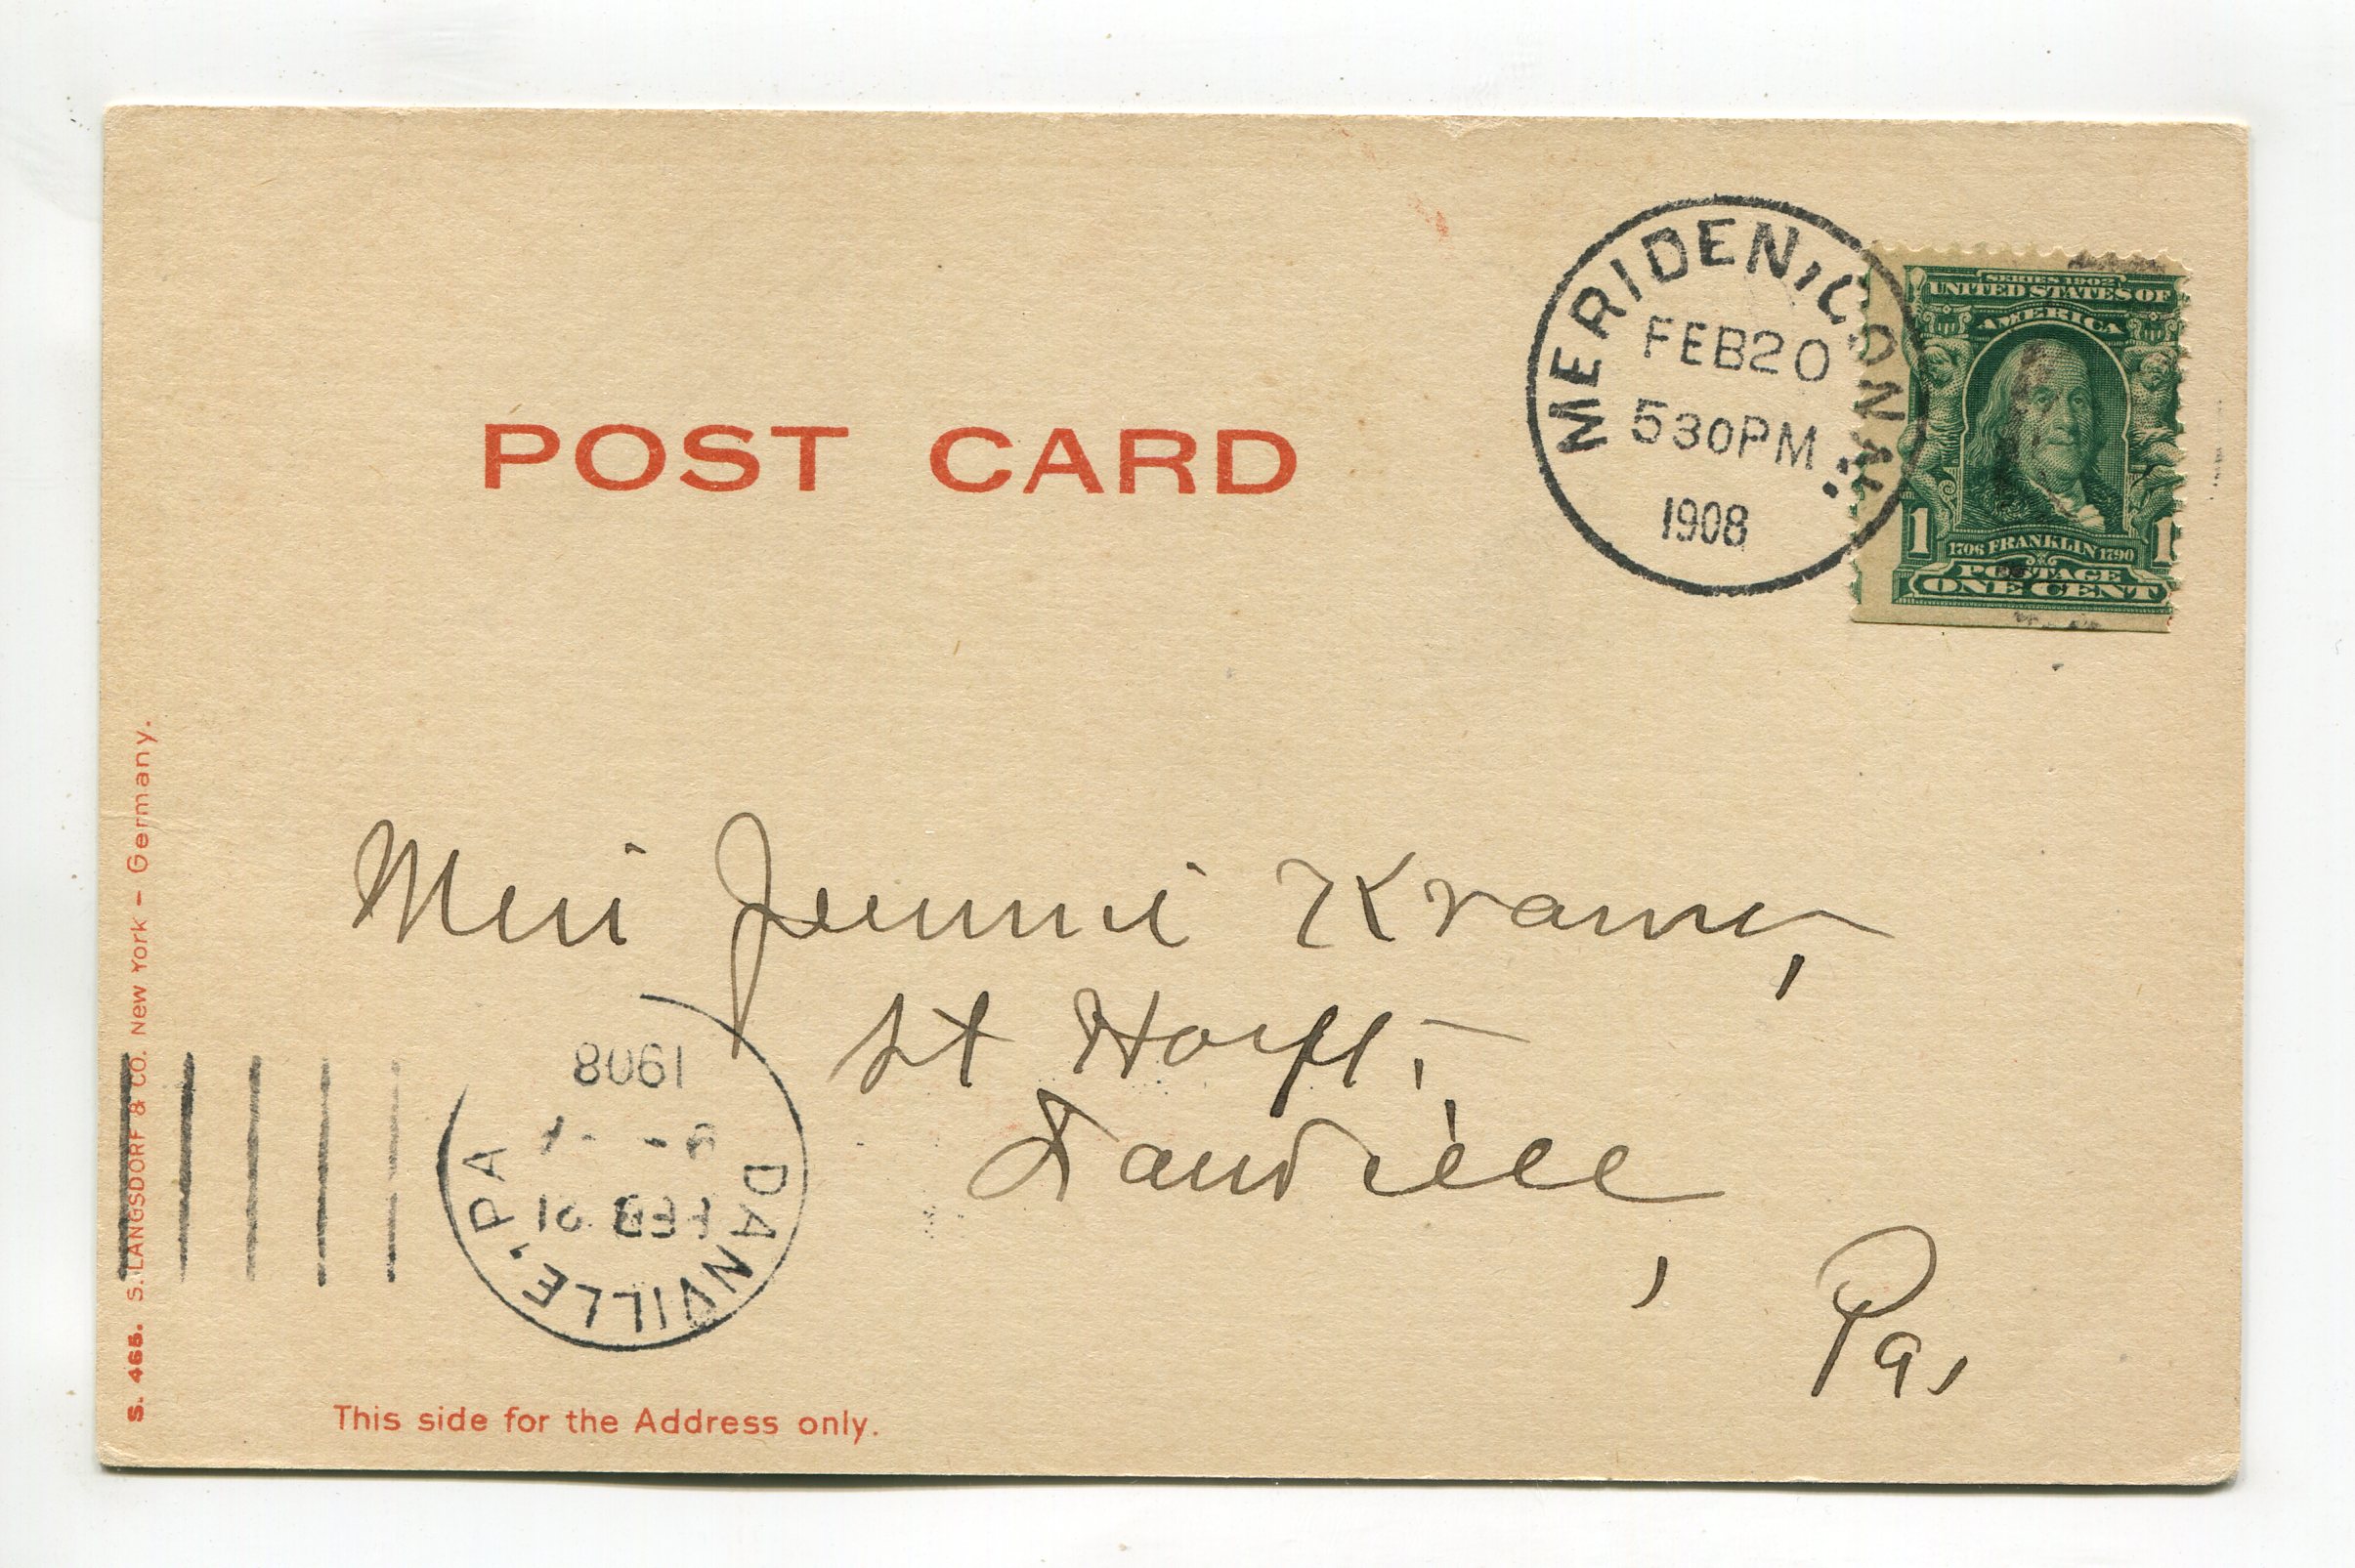 POST CARD
MERIDEN, CONN.
FEB 20
530PM
1908
SERIES 1902
UNITED STATES OF
AMERICA
1 1
1706 FRANKLIN 1790
POSTAGE
ONE CENT
Miss Jennie Kramer,
St Hosptl,
Danville,
Pa,
DANVILLE, PA
FEB 21
1908
S. 465. S. LANGSDORF & CO. New York – Germany.
This side for the Address only.